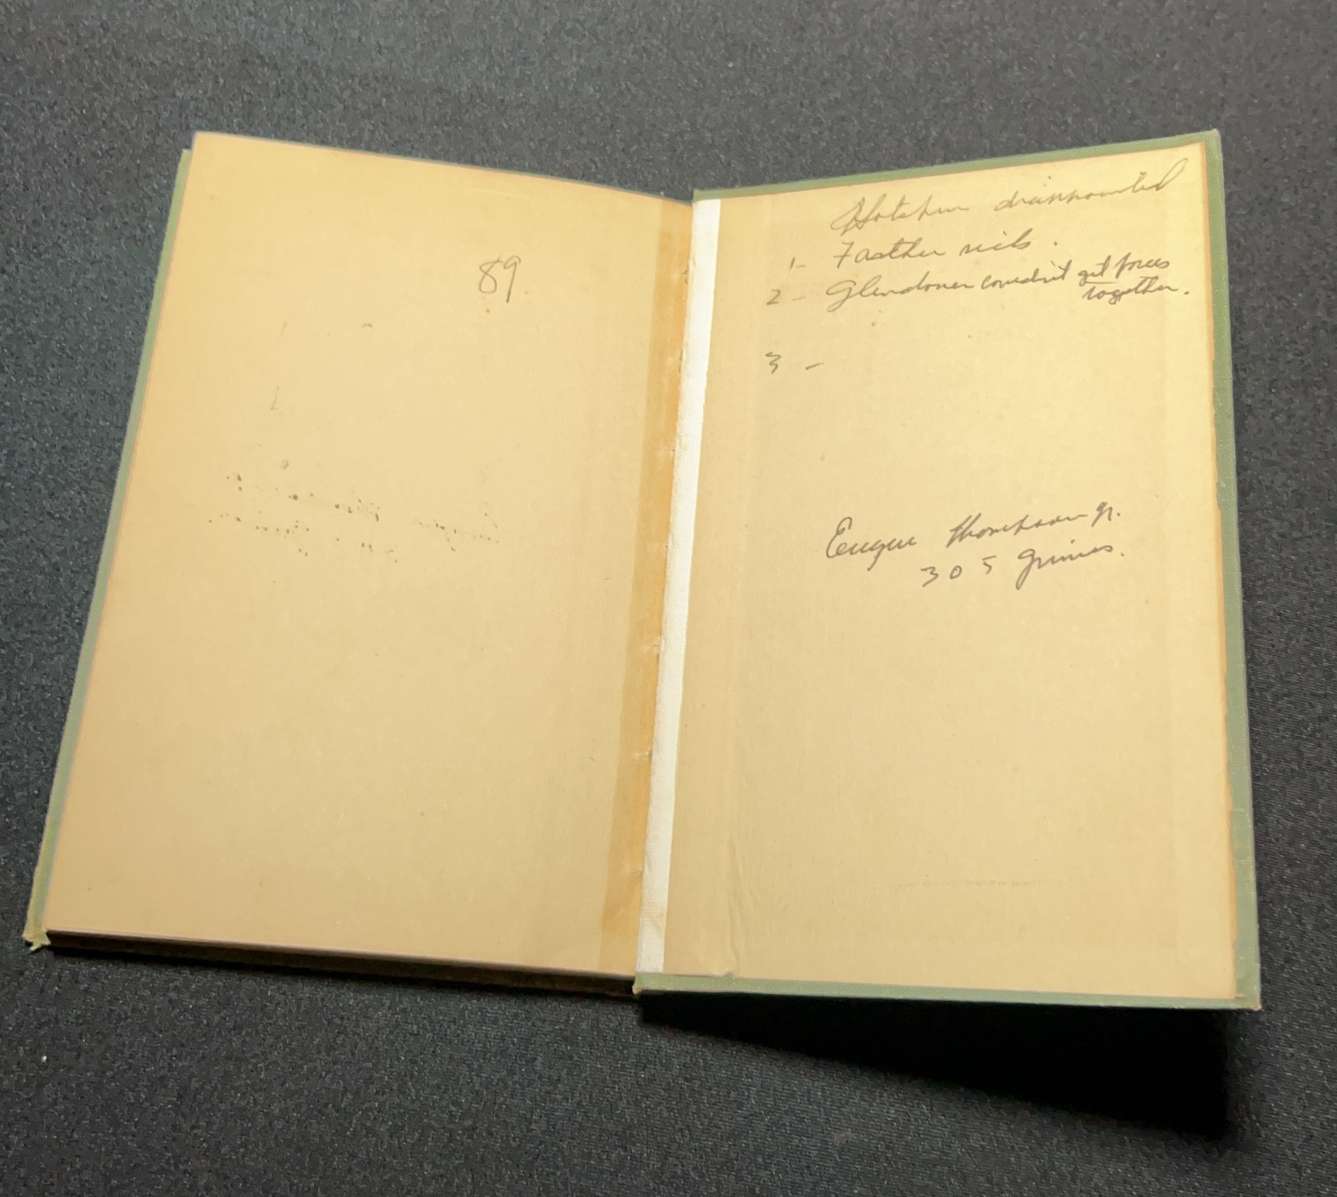 89
Hotspur disappointed
1- Father sick.
2- Glendower couldn't get forces
together.
3 -
Eugene Thompson Jr.
305 Grimes.